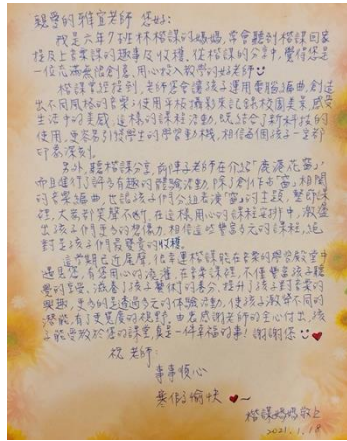 親愛的雅宜老師 您好:
我是六年7班林楷謀的媽媽,常會聽到楷謀回家
提及上音樂課的趣事及收穫,從楷謀的分享中,覺得您是
一位充滿無限創意、用心投入教學的好老師
楷謀曾經提到,老師您會讓孩子運用電腦編曲,創造
出不同風格的音樂;使用平板攝影來記錄校園美景,感受
生活中的美感,這樣的課程活動,結合了新科技的
使用,更容易引發學生的學習動機,相信每個孩子一定都
印象深刻。
另外,聽楷謀分享,前陣子老師在介紹
而且進行了許多有趣的體驗活動,除了創作與「笛」相關
的音樂編曲,也讓孩子們分組表演「笛」的主題,整節課
裡,大家都笑聲不斷,在這樣用心的課程安排中,激盪
出孩子們更多的想像力,相信這些豐富多元的課程,絕
對是孩子們最寶貴的收穫。
這學期已近尾聲,很幸運楷謀能在音樂的學習殿堂中
遇見您,有您用心的澆灌,在音樂課裡,不僅豐富孩子聽
覺的享受、滋養了孩子藝術的養分,提升了孩子對音樂的
興趣,更多的是透過多元的体驗活動,使孩子激發不同的
潛能,有了更寬廣的視野,由衷感謝老師的全心付出,孩
子能受教於您的課堂,真是一件幸福的事!謝謝您
祝 老師:
事事順心
寒假愉快
楷謀媽媽敬上
2021.1.18